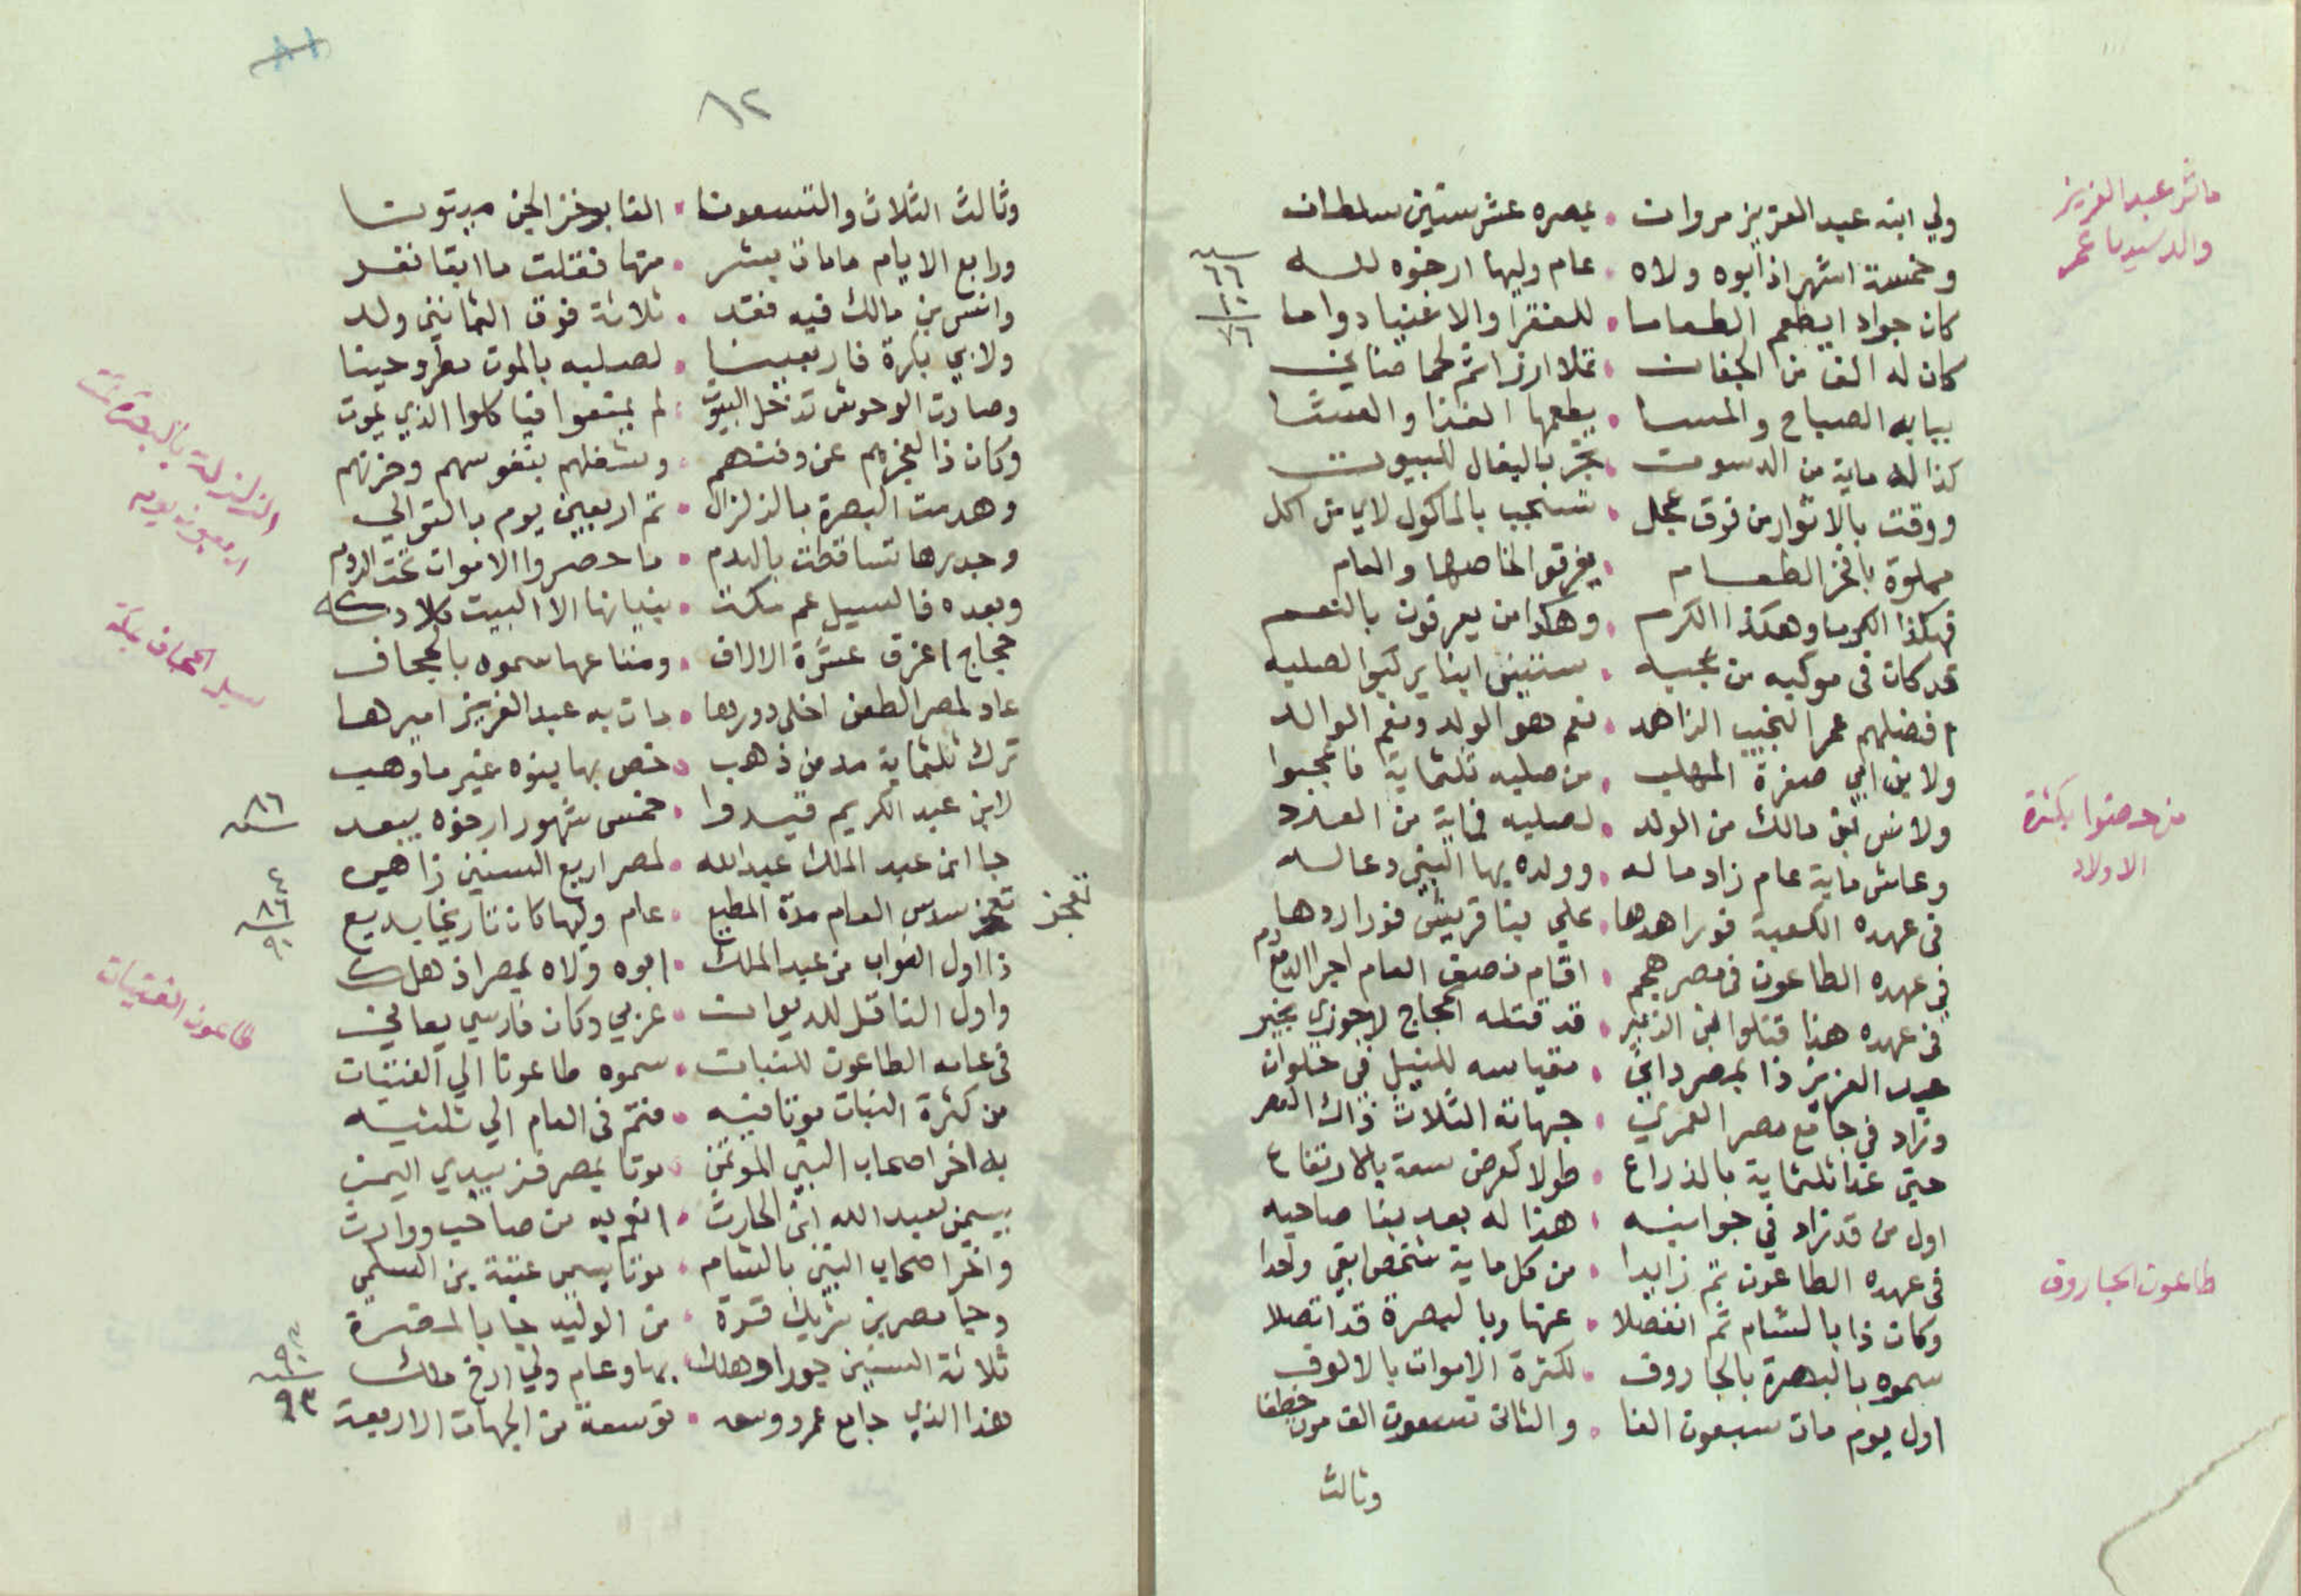 ماثر عبد العزيز
والد سيدنا عمر
ولي ابنه عبد العزيز مروان . عصره عشر ستين سلطان
وخمسة اشهر اذ ابوه ولاه . عام وليها ارخوه لله
سنة
٦٦
١٠
٧٦
كان جوادا يطعم الطعاما . للفقرا والاغنيا دواما
كان له الف من الجفان . تملا ارزا ثم لحما ضاني
ببابه الصباح والمسا . يطعمها الغذا والعشا
كذا له ماية من الدسوت . تجر بالبغال للبيوت
ووقت بالاثوار من فوق عجل . تسحب بالماكول لاي من اكل
مملوة بافخر الطعام . يفرقوا لخاصها والعام
فهكذا الكرما وهكذا الكرم . وهكذا من يعرفون بالنعم
قد كان في موكبه من عجبه . ستين ابنا يركبوا لصلبه
افضلهم عمر النجيب الزاهد . نعم هو الولد ونعم الوالد
ولابن ابي صفرة المهلب . من صلبه ثلثماية فاعجبوا
من خصوا بكثرة
الاولاد
ولانس ابن مالك من الولد . لصلبه فماية من العدد
وعاش ماية عام زاد ماله . وولده بها النبي دعا له
في عهده الكعبة فورا هدها . علي بنا قريش فورا ردها
في عهده الطاعون في مصر هجم . اقام نصف العام اجرا الدمع دم
في عهده هذا قتلوا ابن الزبير . قد قتله الحجاج لا جوزي بخير
عبد العزيز ذا بمصر داني . مقياسه للنيل في حلوان
وزاد في جامع مصر العمري . جهاته الثلاث ذاك العصر
حتي غدا ثلثماية بالذراع . طولا كعرض سعة بالارتفاع
اول من قد زاد في جوانبه . هذا له بعد بنا صاحبه
في عهده الطاعون تم زايدا . من كل ماية شخص ابقي واحدا
طاعون الجاروف
وكان ذا بالشام ثم انفصلا . عنها وبالبصرة قد اتصلا
سموه بالبصرة بالجاروف . لكثرة الاموات بالالوف
اول يوم مات سبعون الفا . والثان تسعون الف موت خطفا
وثالث
٨٢
وثالث الثلاث والتسعونا . القابو خز الجن ميتونا
ورابع الايام ما مات بشر . منها فقتلت ما ابقا نفر
وانس بن مالك فيه فقد . ثلاثة فوق الثمانين ولد
ولابي بكرة فاربعينا . لصلبه بالموت مطروحينا
وصارت الوحوش تدخل البيوت . لم يمنعوا فياكلوا الذي يموت
وكان ذا لعجزهم عن دفنهم . وشغلهم بنفوسهم وحزنهم
الزلزلة بالبصرة تمت
اربعون يوم
وهدمت البصرة بالزلزال . تم اربعين يوم بالتوالي
وجدرها تساقطت بالهدم . ما حصروا الاموات تحت الردم
وبعده فالسيل عم مكة . بنيانها الا البيت بلا دكه
سيل الجحاف بمكة
حجاج اغرق عشرة الالاف . ومتاعها سموه بالجحاف
عاد لمصر الطعن اخلي دورها . مات به عبد العزيز اميرها
ترك ثلثماية مد من ذهب . خص بها بنوه غير ما وهب
لابن عبد الكريم قيدوا . خمس شهور ارخوه ببعد
سنة ٨٦
جا ابن عبد الملك عبد الله . لمصر اربع السنين زاهيه
تعجز
سادس العام مدة المطيع . عام وليها كان تاريخا بديع
٤
٨٦
سنة ٩٠
ذا اول النواب من عبد الملك . ابوه ولاه بمصر اذ هلك
واول الناقل للديوان . عربي وكان فارسي يعاني
طاعون الفتيات
في عامه الطاعون للبنات . سموه طاعونا الي الفتيات
من كثرة البنات موتا فيه . فتم في العام الي ثلثيه
به اخر اصحاب النبي المؤتمن . موتا بمصر فزبيدي اليمن
يسمي لعبد الله ابن الحارث . انعم به من صاحب ووارث
واخر اصحاب النبي بالشام . موتا يسمي عتبة بن السلمي
وجا مصر بن شريك قرة . من الوليد جا بالمضرة
ثلاثة السنين جورا وهلك . بها وعام ولي ارخ ملك
٩٠
سنة
٩٣
هذا الذي جامع عمرو وسعه . توسعة من الجهات الاربعة